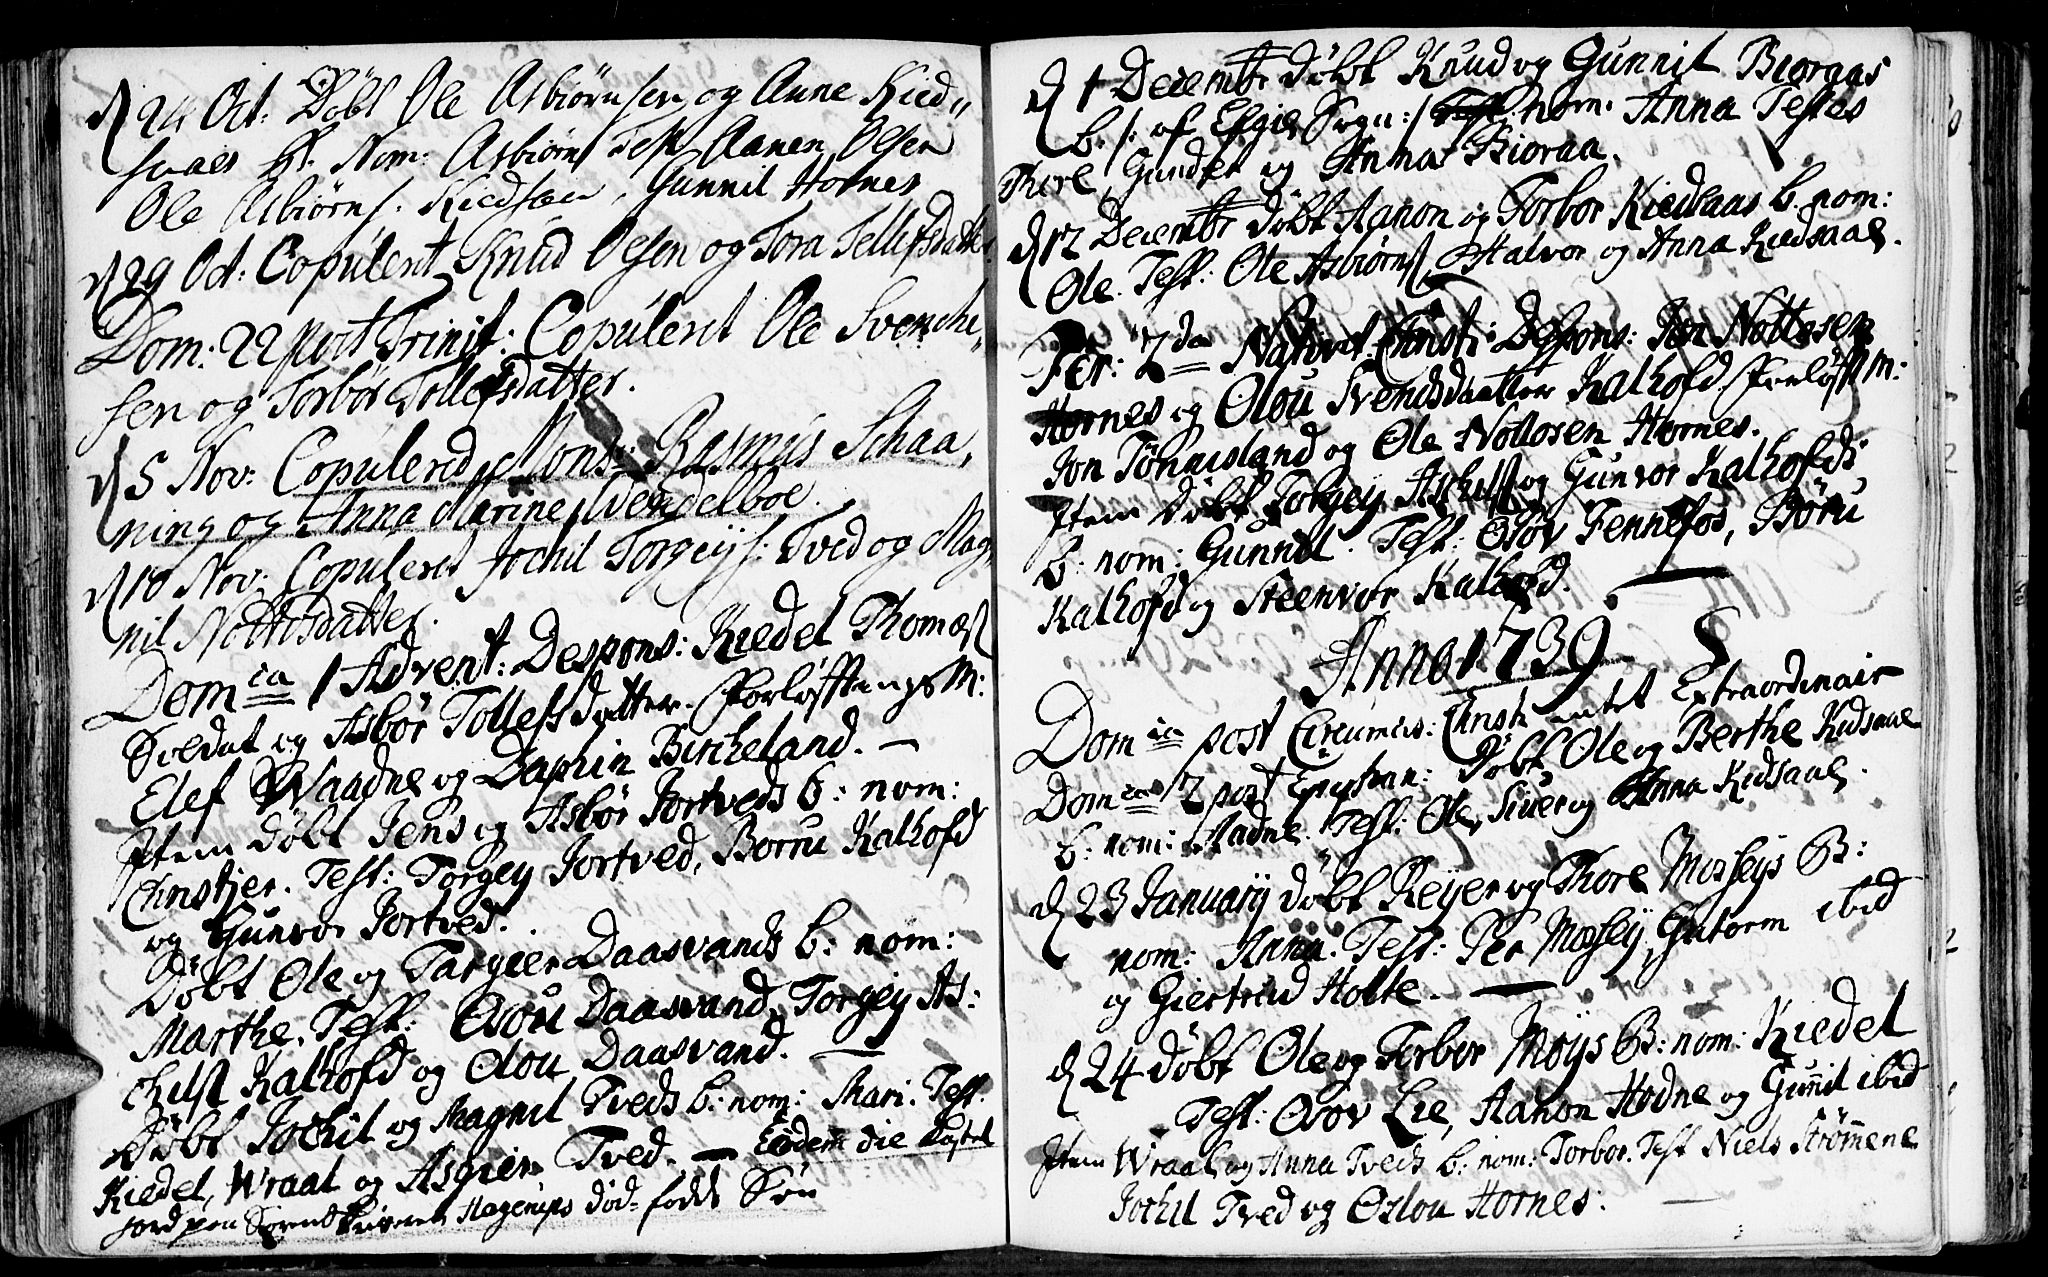 d 24 Oct: Döbt Ole Asbiørnsen og Anne Kied„
saaes b: Nom: Asbiørn Test Aanen Olsen
Ole Asbiørns. Kiedsaa, Gunnil Hornes
d 29 Oct: Copulert Knud Olsen og Tora Tellefsdatter.
Dom: 22 post Trinit: Copuleret Ole Svenche„
sen og Torbor Tollefsdatter.
d 5 Nov: Copulered Mons: Rasmus Schaa„
ning og Anna Marine Wendelboe.
d 10 Nov: Copuleret Jochil Torgeijs: Tved og Mag„
nil Nottosdatter.
Dom ca 1 Advent: Despons: Kiedel Thomæs
Soldat og Asbør Tollefsdatter. Forløfftings M:
Elef Waadne og Daphin Bircheland. —
Item döbt Jens og Asbør Jortveds b: nom:
Christjer. Test: Torgey Jortved, Borru Kalhofd
og Gunvor Jortved.
Döbt Ole og Targier Daasvands b: nom:
Marthe. Test: Osou Daasvand, Torgey As:
chilst Kalhofd og Olou Daasvand. —
Döbt Jochil og Magnil Tveds b: nom: Mari. Test.
Kiedel, Wraal og Asgier Tved. — Eodem die kastet
jord paa Sorenskriver Hagerups død-fødde Søn
d 1 Decembr döbt Knud og Gunnil Bioraas
b. /: af Efgie Sogn:/ nom: Anna Testes
Thore, Gunder og Anna Bioraa.
d 12 Decembr döbt Aanon og Torbor Kiedsaas b. nom:
Ole. Test: Ole Asbiørns, Halvor og Anna Kiedsaae.
Fer: 2da Nativit: Christi: Despons: Jon Nottosen
Hornes og Olou Svendsdaatter Kalhofd. Forløfft M:
Jon Tønnesland og Ole Nottosen Hornes.
Item döbt Torgeij Aschilss og Gunvor Kalhofds
b: nom: Gunnil. Test: Osov Fennefos, Böru
Kalhofd og Steenvor Kalhofd.
Anno 1739.
Dom ca post Circumcis: Christi intet Extraordinair
Dom ca 2 post Epiphan: Döbt Ole og Berthe Kidsaae
b: nom: Aadne. Test: Ole, Siver og Anna Kidsaae.
d 23 Januarij döbt Reijer og Thore Mosseys B:
nom: Anna. Test: Per Mossey, Gutorm ibid
og Giertrud Holte. —
d 24 döbt Ole og Torbor Moijs B: nom: Kiedel
Test: Osov Lie, Aanon Hodne og Gunil ibid
Item Wraal og Anna Tveds b: nom: Torbor. Test Niels Strømene
Jochil Tved og Oslou Hornes: —